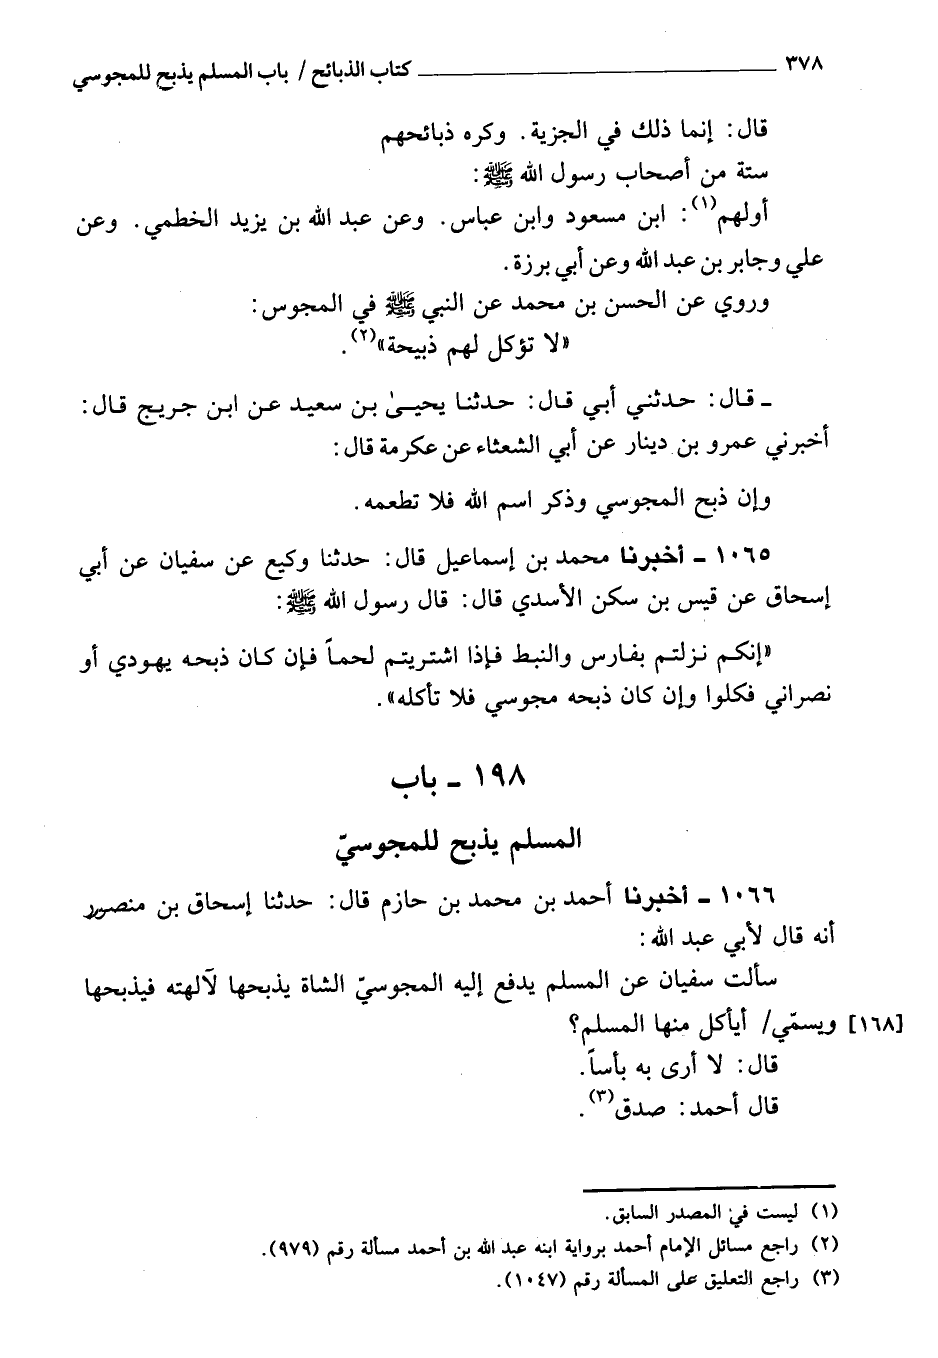 ٣٧٨ ــــــــــــــــــــ كتاب الذبائح / باب المسلم يذبح للمجوسي
قال: إنما ذلك في الجزية. وكره ذبائحهم
ستة من أصحاب رسول الله ﷺ:
أولهم(١): ابن مسعود وابن عباس. وعن عبد الله بن يزيد الخطمي. وعن
علي وجابر بن عبد الله وعن أبي برزة.
وروي عن الحسن بن محمد عن النبي ﷺ في المجوس:
«لا تؤكل لهم ذبيحة»(٢).
ـ قال: حدثني أبي قال: حدثنا يحيىٰ بن سعيد عن ابن جريج قال:
أخبرني عمرو بن دينار عن أبي الشعثاء عن عكرمة قال:
وإن ذبح المجوسي وذكر اسم الله فلا تطعمه.
١٠٦٥ ـ أخبرنا محمد بن إسماعيل قال: حدثنا وكيع عن سفيان عن أبي
إسحاق عن قيس بن سكن الأسدي قال: قال رسول الله ﷺ:
«إنكم نزلتم بفارس والنبط فإذا اشتريتم لحماً فإن كان ذبحه يهودي أو
نصراني فكلوا وإن كان ذبحه مجوسي فلا تأكله».
١٩٨ ـ باب
المسلم يذبح للمجوسيّ
١٠٦٦ ـ أخبرنا أحمد بن محمد بن حازم قال: حدثنا إسحاق بن منصور
أنه قال لأبي عبد الله:
سألت سفيان عن المسلم يدفع إليه المجوسيّ الشاة يذبحها لآلهته فيذبحها
[١٦٨] ويسمّي/ أيأكل منها المسلم؟
قال: لا أرى به بأساً.
قال أحمد: صدق(٣).
(١) ليست في المصدر السابق.
(٢) راجع مسائل الإمام أحمد برواية ابنه عبد الله بن أحمد مسألة رقم (٩٧٩).
(٣) راجع التعليق على المسألة رقم (١٠٤٧).